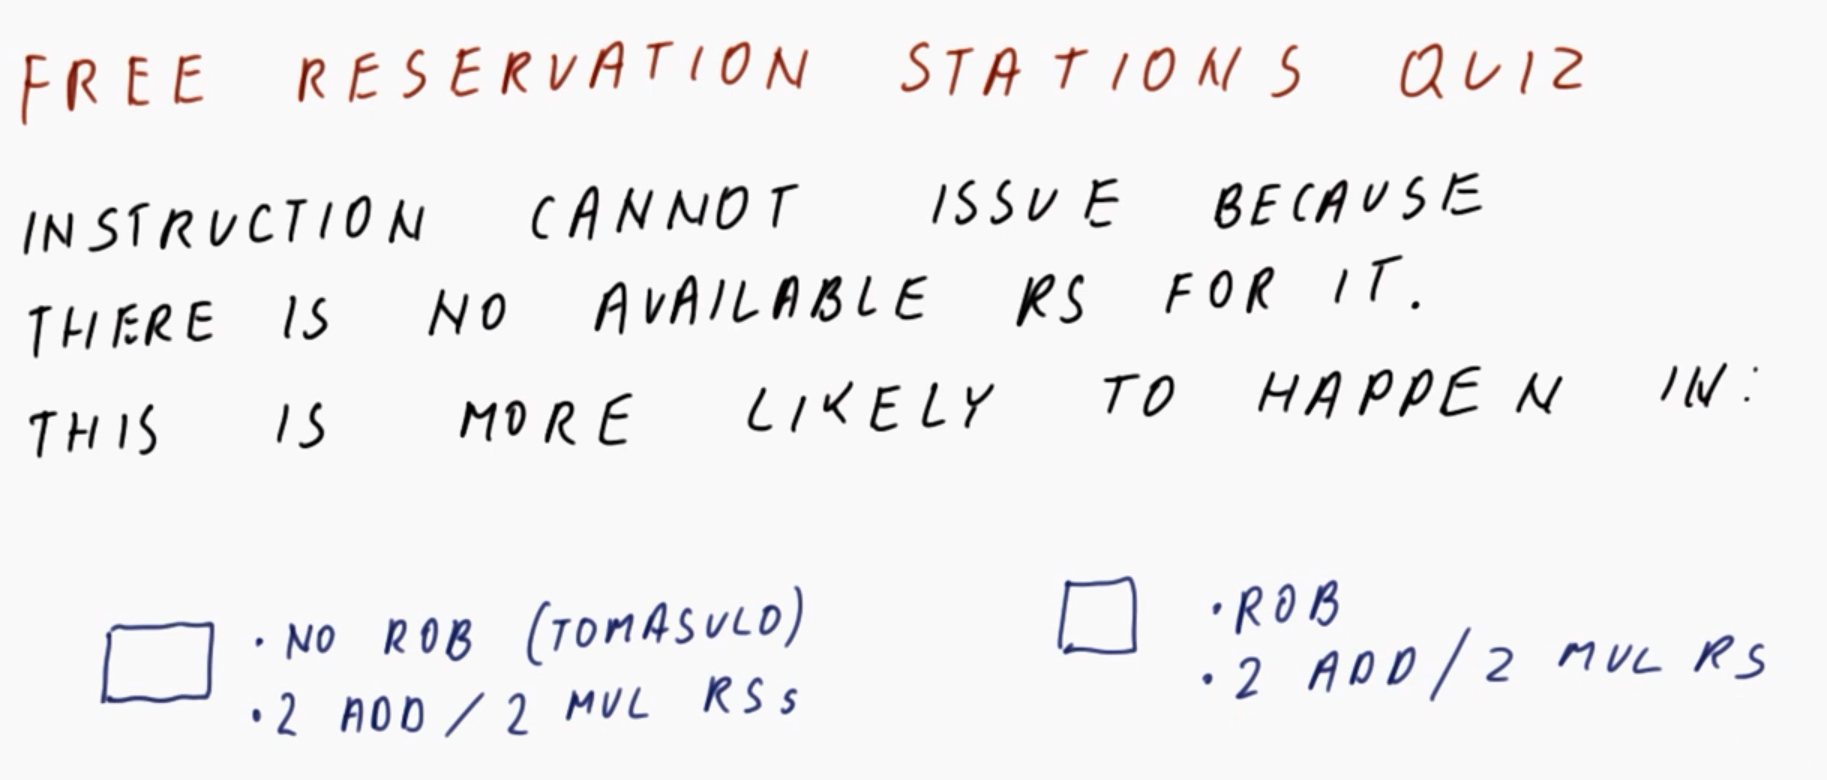 FREE RESERVATION STATIONS QUIZ
INSTRUCTION CANNOT ISSUE BECAUSE
THERE IS NO AVAILABLE RS FOR IT.
THIS IS MORE LIKELY TO HAPPEN IN:
• NO ROB (TOMASULO)
• 2 ADD/2 MUL RSs
• ROB
• 2 ADD/2 MUL RS